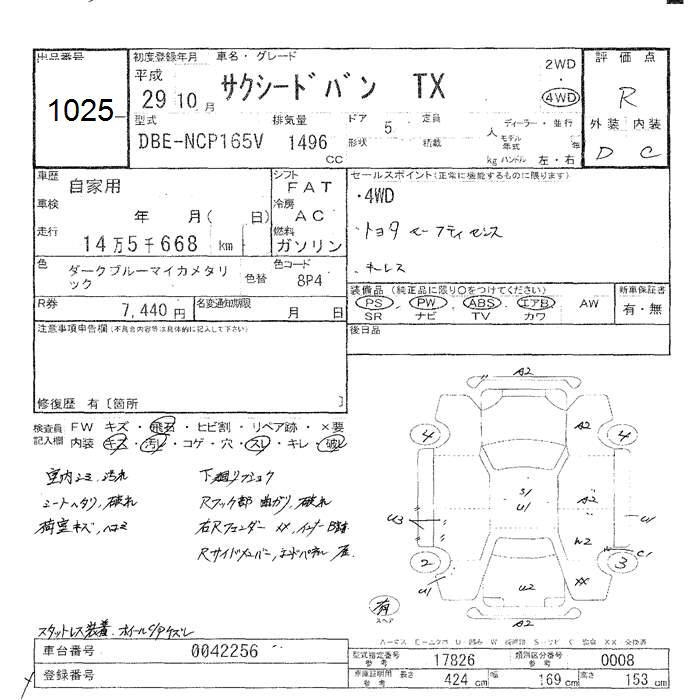 出品番号
1025
初度登録年月 車名・グレード
平成
29 10 月
サクシードバン TX
2WD
・
4WD
評価点
R
外装 内装
D C
型式
DBE-NCP165V
排気量
1496
CC
ドア 5 定員
形状 積載
人
kg
ディーラー・並行
モデル年式 年
ハンドル 左・右
車歴 自家用
車検 年 月( 日)
走行 14万5千668 km
シフト FAT
冷房 AC
燃料 ガソリン
色 ダークブルーマイカメタリック
色替
色コード 8P4
R券 7,440 円
名変通知期限 月 日
セールスポイント(正常に機能するものに限ります)
・4WD
・トヨタセーフティセンス
・キーレス
装備品 (純正品に限り○をつけてください)
PS PW ABS エアB AW
SR ナビ TV カワ
新車保証書
有・無
後日品
注意事項申告欄(不具合内容等は具体的に記入して下さい)
修復歴 有〔箇所 〕
検査員記入欄
FW キズ・飛石・ヒビ割・リペア跡・×要
内装 キズ・汚レ・コゲ・穴・スレ・キレ・破レ
室内シミ、汚れ
シートヘタリ、破れ
荷室キズ、ヘコミ
下廻りフショク
Rフック部 曲がり、破れ
右Rフェンダー XX、インナーB跡
Rサイドメンバー、エンドパネル
スタットレス装着、ホイールC/Pズレ
A2
4
A2
4
S1
U1
A2
U3
U1
W2
C1
2
3
U1
U2
XX
A2
有
スペア
車台番号 0042256
登録番号
型式指定番号 参考 17826
類別区分番号 参考 0008
車庫証明用 参考 長さ 424 cm 幅 169 cm 高さ 153 cm